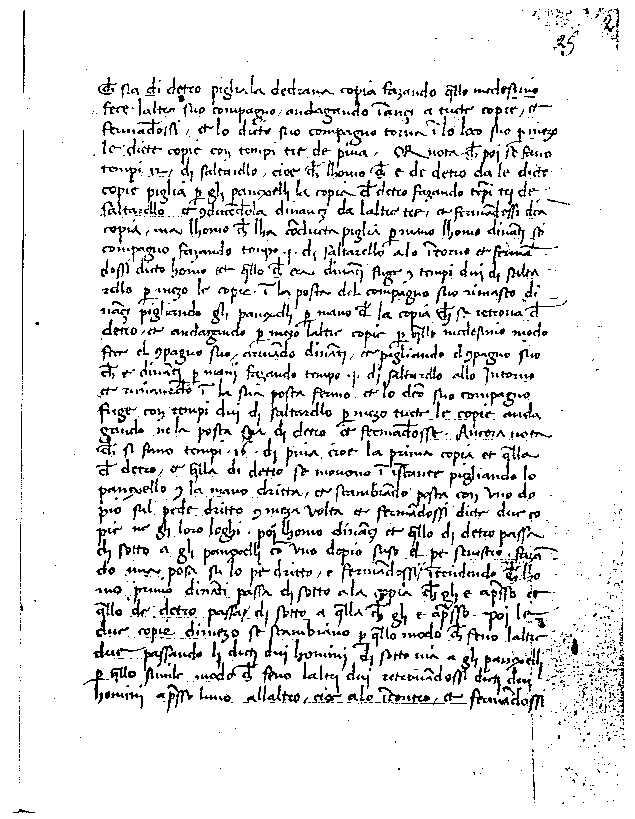 25
che sta di detro piglia la dedrama copia fazando q̄llo medesimo
fece laltro suo compagno, andagando ināçi a tucte copie, et
fermādossi, et lo dicto suo compagno torna ī lo loco suo p mezo
le dicte copie con tempi tre de piva. OR nota ch̄ poi se fano
tempi di saltarello, cioe ch̄ lhomo ch̄ e de detro da le dicte
copie piglia p gli panexelli la copia de detro fazando tēpi tri de
saltarello et 9ducendola dinançi da laltre tre, et fermādossi dicta
copia, ma lhomo ch̄ lha cōducta piglia p mano lhomo dināçi so
compagno fazando tempo .j. di saltarello a lo ītorno et fermā
dossi dicto homo et q̄llo ch̄ era dināçi fuge 9 tempi dui di salta
rello p mezo le copie ī la posta del compagno suo rimasto di
nāçi pigliando gli panexelli p mano de la copia ch̄ se retrova de
detro, et andagando p mezo laltre copie p q̄llo medesimo modo
fece el 9pagno suo, tirando dināçi, et pigliando el 9pagno suo
ch̄ e dināçi p mani fazando tempo .j. di saltarello allo Intorno
et rimanēdo ī la sua posta fermo et lo dco suo compagno
fuge con tempi dui di saltarello p mezo tucte le copie anda
gando ne la posta sua di detro et fermādosse. Ancora nota
ch̄ si fano tempi .16. di piva cioe la prima copia et q̄lla
de detro, et q̄lla di detro se moveno ī istante pigliando lo
panexello 9 la mano dritta, et scambiando posta con uno do
pio sul pede dritto 9 meza volta et fermādossi dicte due co
pie ne gli loro loghi. poi lhomo dināçi et q̄llo di detro passa
di sotto a gli panexelli cō uno dopio suso el pe senestro, fazā
do una posa su lo pe dritto, e fermādossi, ītendendo ch̄ lho
mo primo dināti passa di sotto a la copia ch̄ gli e ap̄sso et
q̄llo de detro passa di sotto a q̄lla ch̄ gli e ap̄sso. Poi le
due copie di mezo se scambiano p q̄llo modo ch̄ feno laltre
due passando li dicti dui homini di sotto via a gli panexelli
p q̄llo simile modo ch̄ feno laltri dui retrovādossi dicti dui
homini ap̄sso luno allaltro, cioe a lo īcontro, et fermādossi